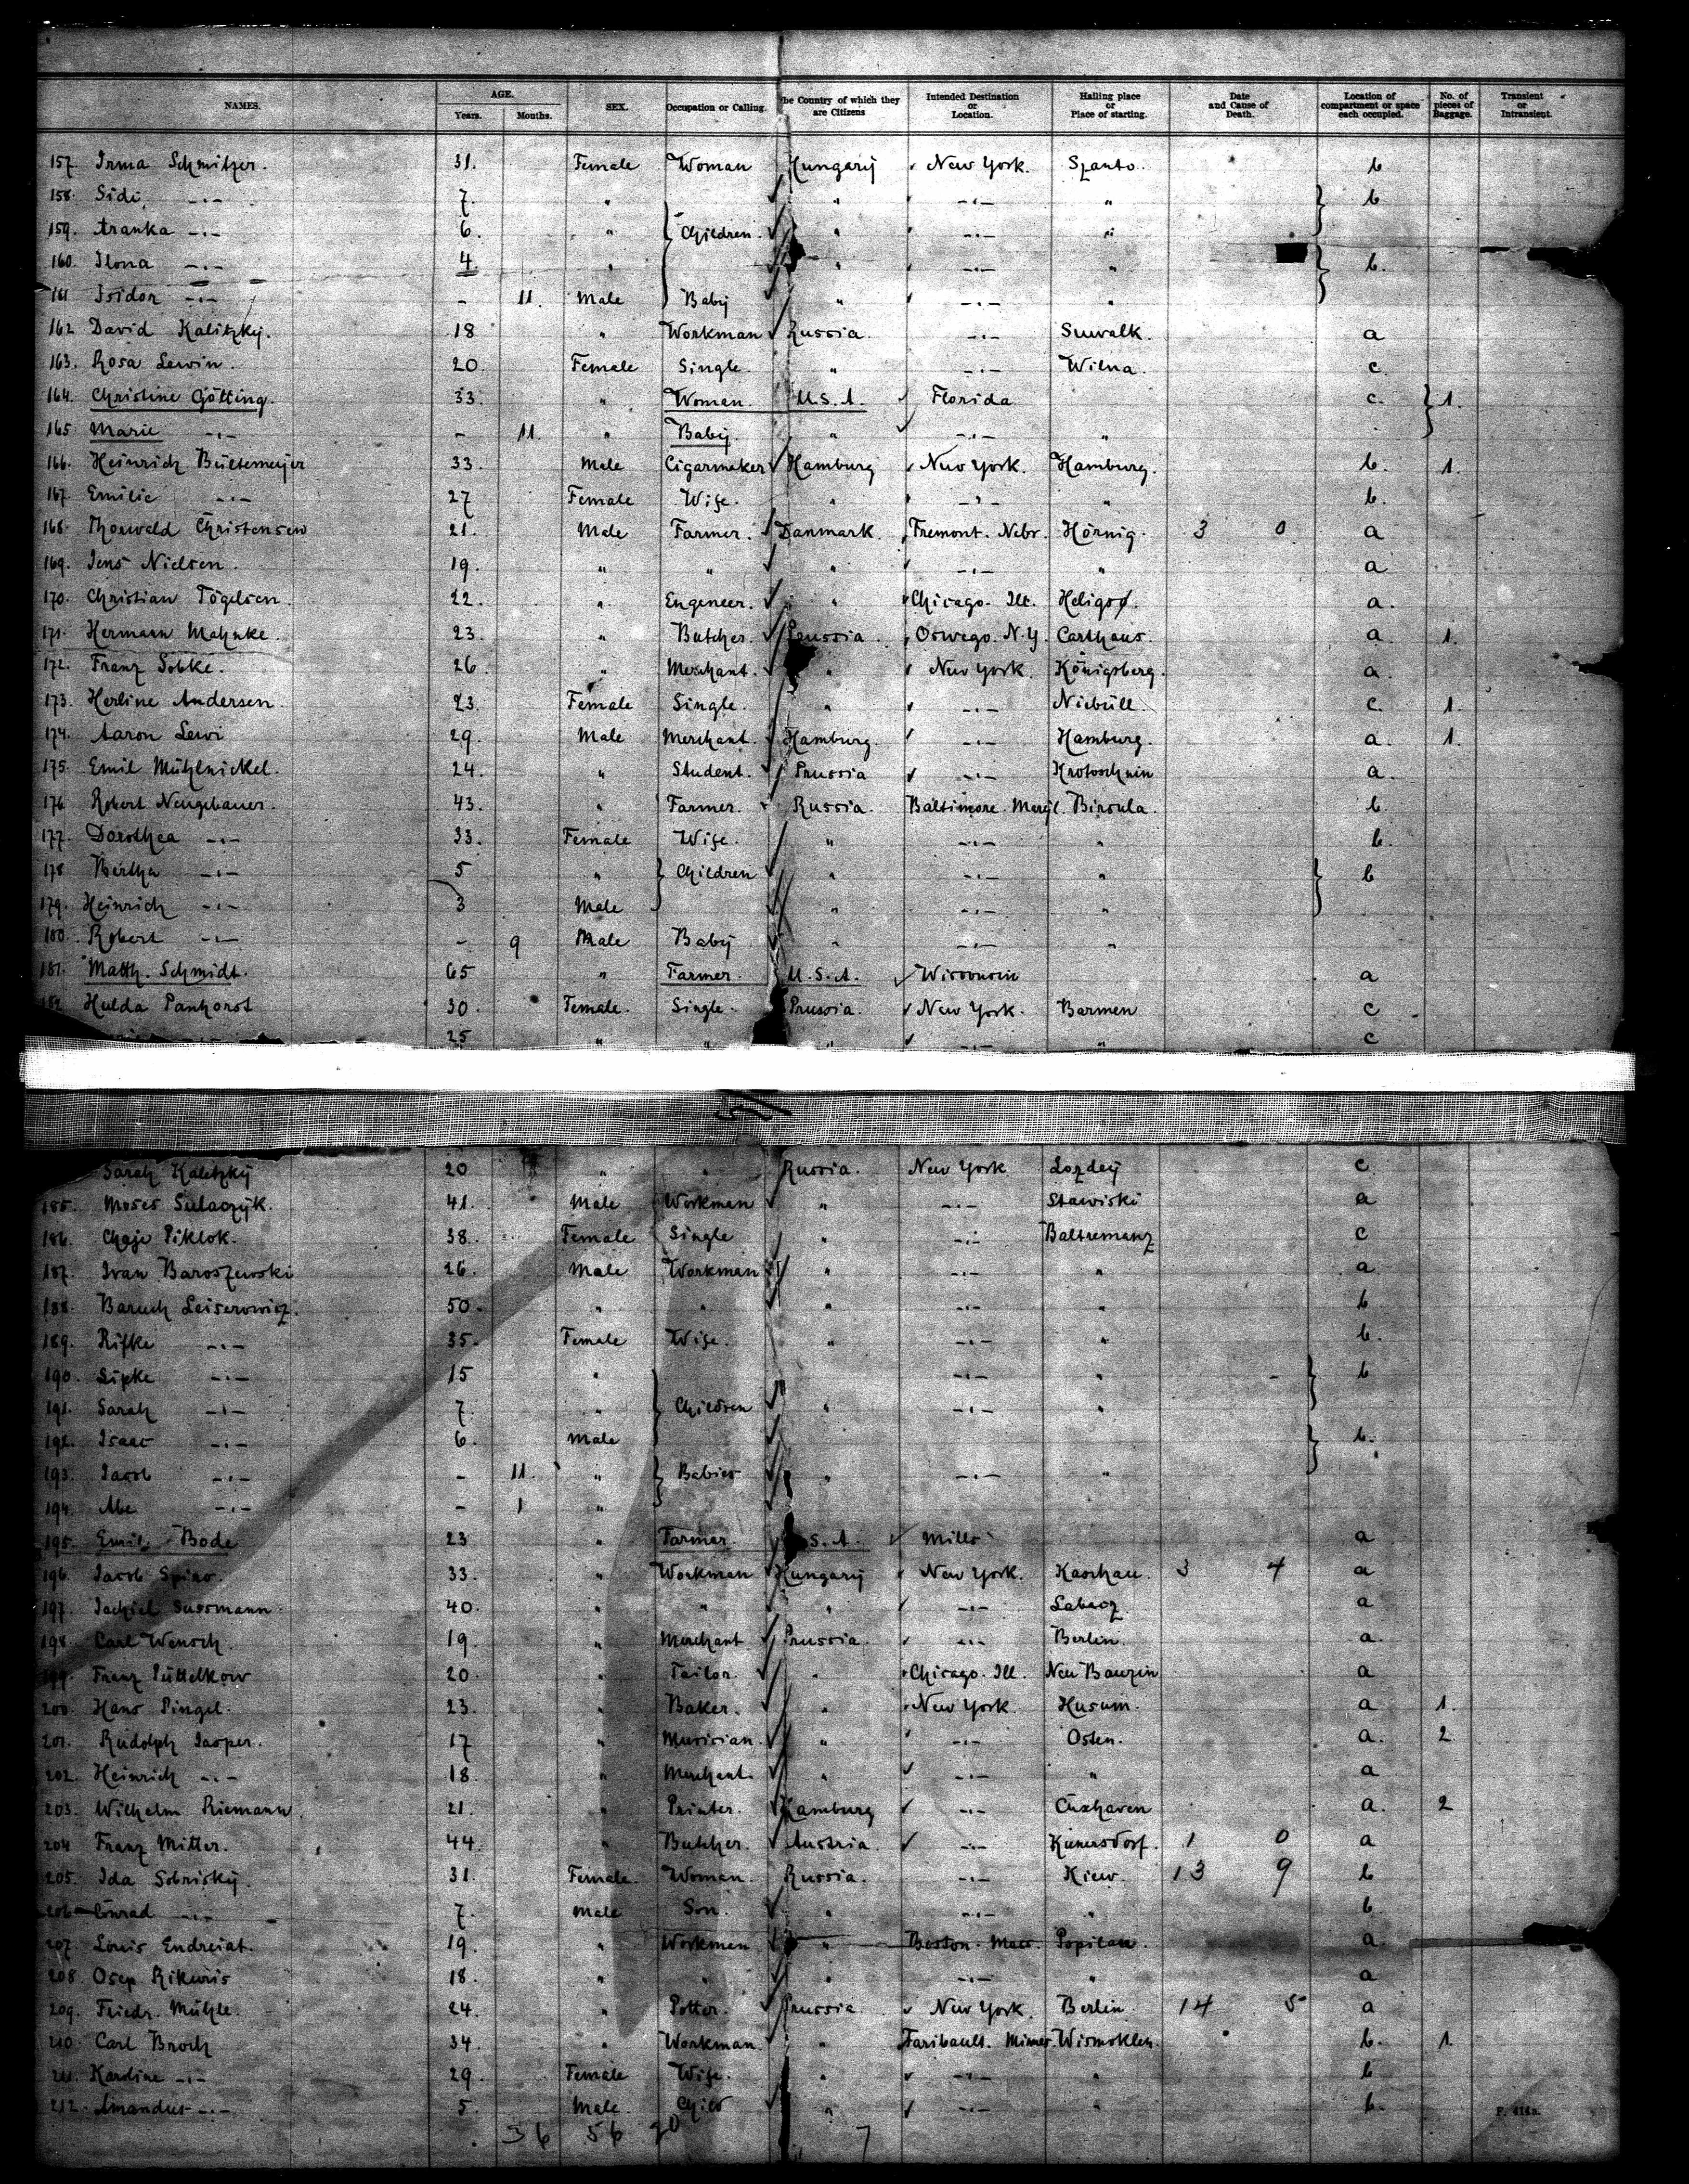 NAMES. AGE. Years. Months. SEX. Occupation or Calling. The Country of which they are Citizens Intended Destination or Location. Hailing place or Place of starting. Date and Cause of Death. Location of compartment or space each occupied. No. of pieces of Baggage. Transient or Intransient.
157. Irma Schmitzer. 31. Female Woman Hungary New York. Szanto. b
158. Sidi, -.- 7. " " -.- " b
159. Aranka -.- 6. " Children. " -.- "
160. Ilona -.- 4. " " -.- " b.
161 Isidor -.- - 11. Male Baby " -.- "
162 David Kalitzky. 18 " Workman Russia. -.- Suwalk. a
163. Rosa Lewin. 20 Female Single. " -.- Wilna. c.
164. Christine Götting. 33. " Woman. U.S.A. Florida c. 1.
165. Marie -.- - 11. " Baby. " -.- "
166. Heinrich Bültemeyer 33. Male Cigarmaker Hamburg New York. Hamburg. b. 1.
167. Emilie -.- 27 Female Wife. " -.- " b.
168. Thorwald Christensen 21. Male Farmer. Danmark. Fremont. Nebr. Hörnig. 3 0 a
169. Jens Nielsen. 19. " " " -.- " a
170. Christian Tögelsen. 22. " Engeneer. " Chicago. Ill. Heligsø. a.
171. Hermann Mahnke. 23. " Butcher. Prussia. Oswego. N.Y. Carthaus. a. 1.
172. Franz Sobke. 26. " Merchant. " New York. Königsberg. a.
173. Herline Andersen. 23. Female Single. " -.- Niebüll. c. 1.
174. Aaron Lewi 29. Male Merchant. Hamburg. -.- Hamburg. a. 1.
175. Emil Mühlnickel. 24. " Student. Prussia -.- Krotoschnin a.
176. Robert Neugebauer. 43. " Farmer. Russia. Baltimore. Maryl. Birsula. b.
177. Dorothea -.- 33. Female Wife. " -.- " b.
178 Bertha -.- 5 " Children " -.- " b
179. Heinrich -.- 3 Male " -.- "
180. Robert -.- - 9 Male Baby " -.- "
181. Matth. Schmidt. 65 " Farmer. U.S.A. Wisconsin a
182 Hulda Panhorst 30 Female. Single. Prussia. New York. Barmen c
25 " " " -.- " c
Sarah Kalitzky 20 " " Russia. New York Lozdey c
185. Moses Sulaczyk. 41. Male Workman " -.- Stawiski a
186. Chaje Piklok. 38. Female Single " -.- Baltremanz c
187. Ivan Baroszewski 26. Male Workman " -.- " a
188. Baruch Leiserowicz. 50. " " " -.- " b
189. Rifke -.- 35. Female Wife. " -.- " b.
190. Lipke -.- 15 " -.- " b
191. Sarah -.- 7. " Children " -.- "
192. Isaac -.- 6. Male b.
193. Jacob -.- - 11. " Babies " -.- "
194. Abe -.- - 1 "
195. Emil Bode 23 " Farmer. U.S.A. Mills a
196. Jacob Spiro. 33. " Workman Hungary New York. Kaschau. 3 4 a
197. Jachiel Sussmann 40. " " " -.- Labacz. a
198. Carl Wensch. 19. " Merchant Prussia. -.- Berlin. a.
199. Franz Püttelkow 20. " Tailor. " Chicago. Ill. Neu Banzin a
200. Hans Pingel. 23. " Baker. " New York. Husum. a 1.
201. Rudolph Jasper. 17 " Musician. " -.- Osten. a. 2
202. Heinrich -.- 18. " Merchant. " -.- " a
203. Wilhelm Riemann. 21. " Printer. Hamburg -.- Cuxhaven a. 2
204 Franz Mitter. 44. " Butcher. Austria. -.- Kunersdorf. 1 0 a
205. Ida Sobrisky. 31. Female. Woman. Russia. -.- Kiew. 13 9 b
206 Conrad -.- 7. Male Son. " -.- " b
207. Louis Endreiat. 19. " Workmen " Boston. Mass. Popilan. a
208. Osep Rikwis 18. " " " -.- " a
209. Friedr. Mühle. 24. " Potter. Prussia New York. Berlin 14 5 a
210. Carl Broch 34. " Workman. " Faribault. Minnes. Wismoklen. b. 1.
211. Karoline -.- 29. Female Wife. " -.- " b
212. Amandus -.- 5. Male. Child " -.- " b.
36 56 20 7